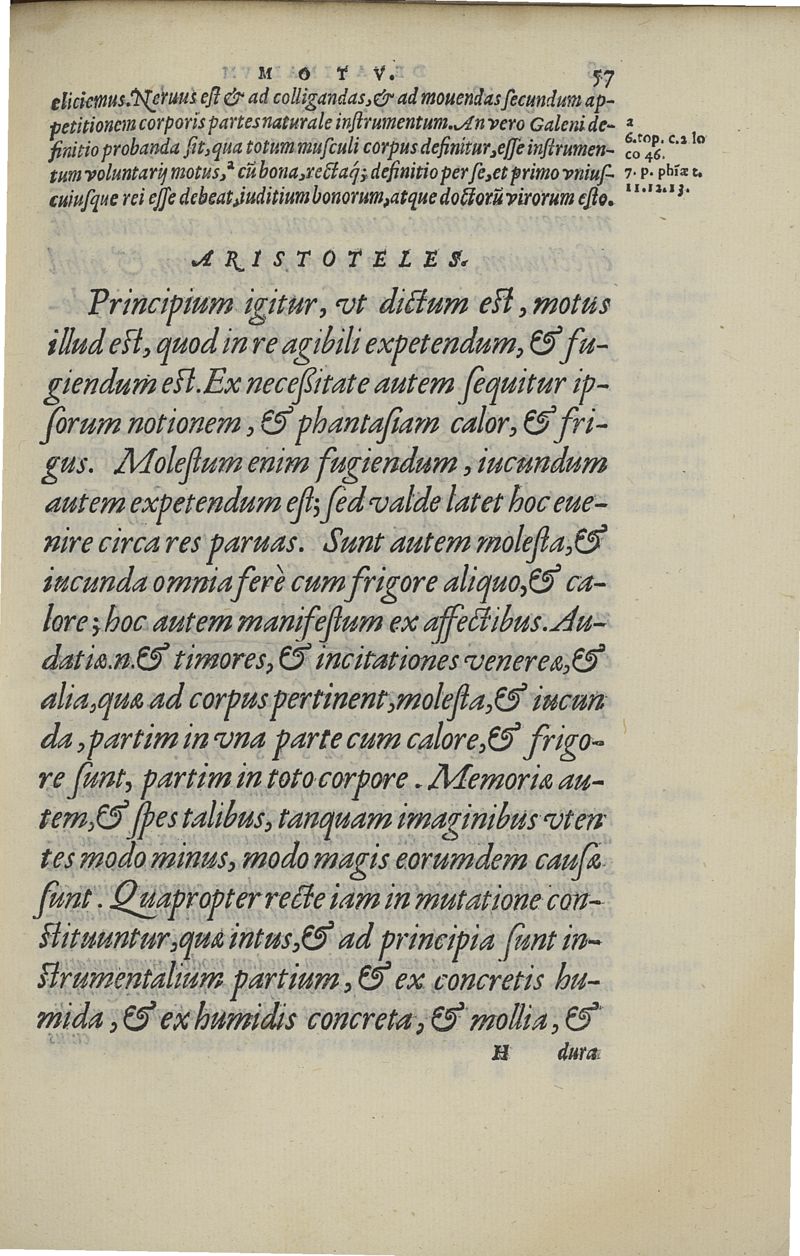 M O T V.
57
eliciemus. Neruus est & ad colligandas, & ad mouendas secundum ap-
petitionem corporis partes naturale instrumentum. An vero Galeni de-
finitio probanda sit, qua totum musculi corpus definitur, esse instrumen-
tum voluntarij motus, ª cũ bona, rectaq́; definitio per se, et primo vnius-
cuiusque rei esse debeat, iuditium bonorum, atque doctorũ virorum esto.
a
6. top. c. 2 lo
co 46.
7. p. phiæ t.
11. 12. 13.
A R I S T O T E L E S.
Principium igitur, vt dictum est, motus
illud est, quod in re agibili expetendum, & fu-
giendum est. Ex necessitate autem sequitur ip-
sorum notionem, & phantasiam calor, & fri-
gus. Molestum enim fugiendum, iucundum
autem expetendum est; sed valde latet hoc eue-
nire circa res paruas. Sunt autem molesta, &
iucunda omnia ferè cum frigore aliquo, & ca-
lore; hoc autem manifestum ex affectibus. Au-
datiæ.n. & timores, & incitationes venereæ, &
alia, quæ ad corpus pertinent, molesta, & iucun
da, partim in vna parte cum calore, & frigo-
re sunt, partim in toto corpore. Memoriæ au-
tem, & spes talibus, tanquam imaginibus vten
tes modo minus, modo magis eorumdem causæ
sunt. Quapropter recte iam in mutatione con-
stituuntur, quæ intus, & ad principia sunt in-
strumentalium partium, & ex concretis hu-
mida, & ex humidis concreta, & mollia, &
H dura